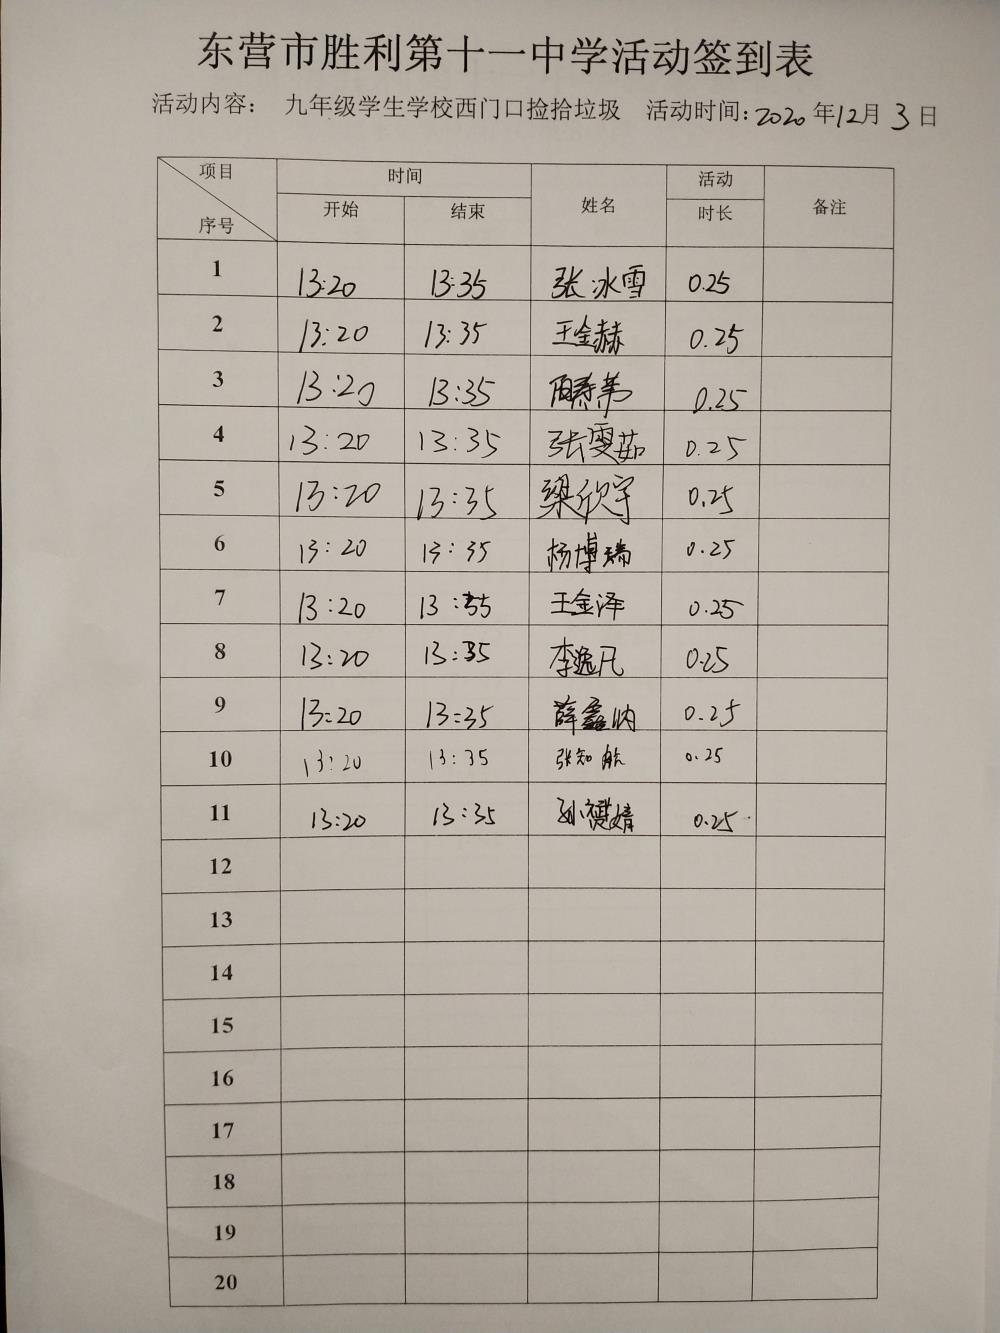 东营市胜利第十一中学活动签到表
活动内容： 九年级学生学校西门口捡拾垃圾 活动时间：2020年12月3日
项目 时间 姓名 活动 备注
序号 开始 结束 时长
1 13:20 13:35 张冰雪 0.25
2 13:20 13:35 王金赫 0.25
3 13:20 13:35 0.25
4 13:20 13:35 张雯茹 0.25
5 13:20 13:35 梁欣宇 0.25
6 13:20 13:35 杨博瑞 0.25
7 13:20 13:35 王金泽 0.25
8 13:20 13:35 李逸凡 0.25
9 13:20 13:35 薛鑫 0.25
10 13:20 13:35 张知航 0.25
11 13:20 13:35 孙 婧 0.25
12
13
14
15
16
17
18
19
20